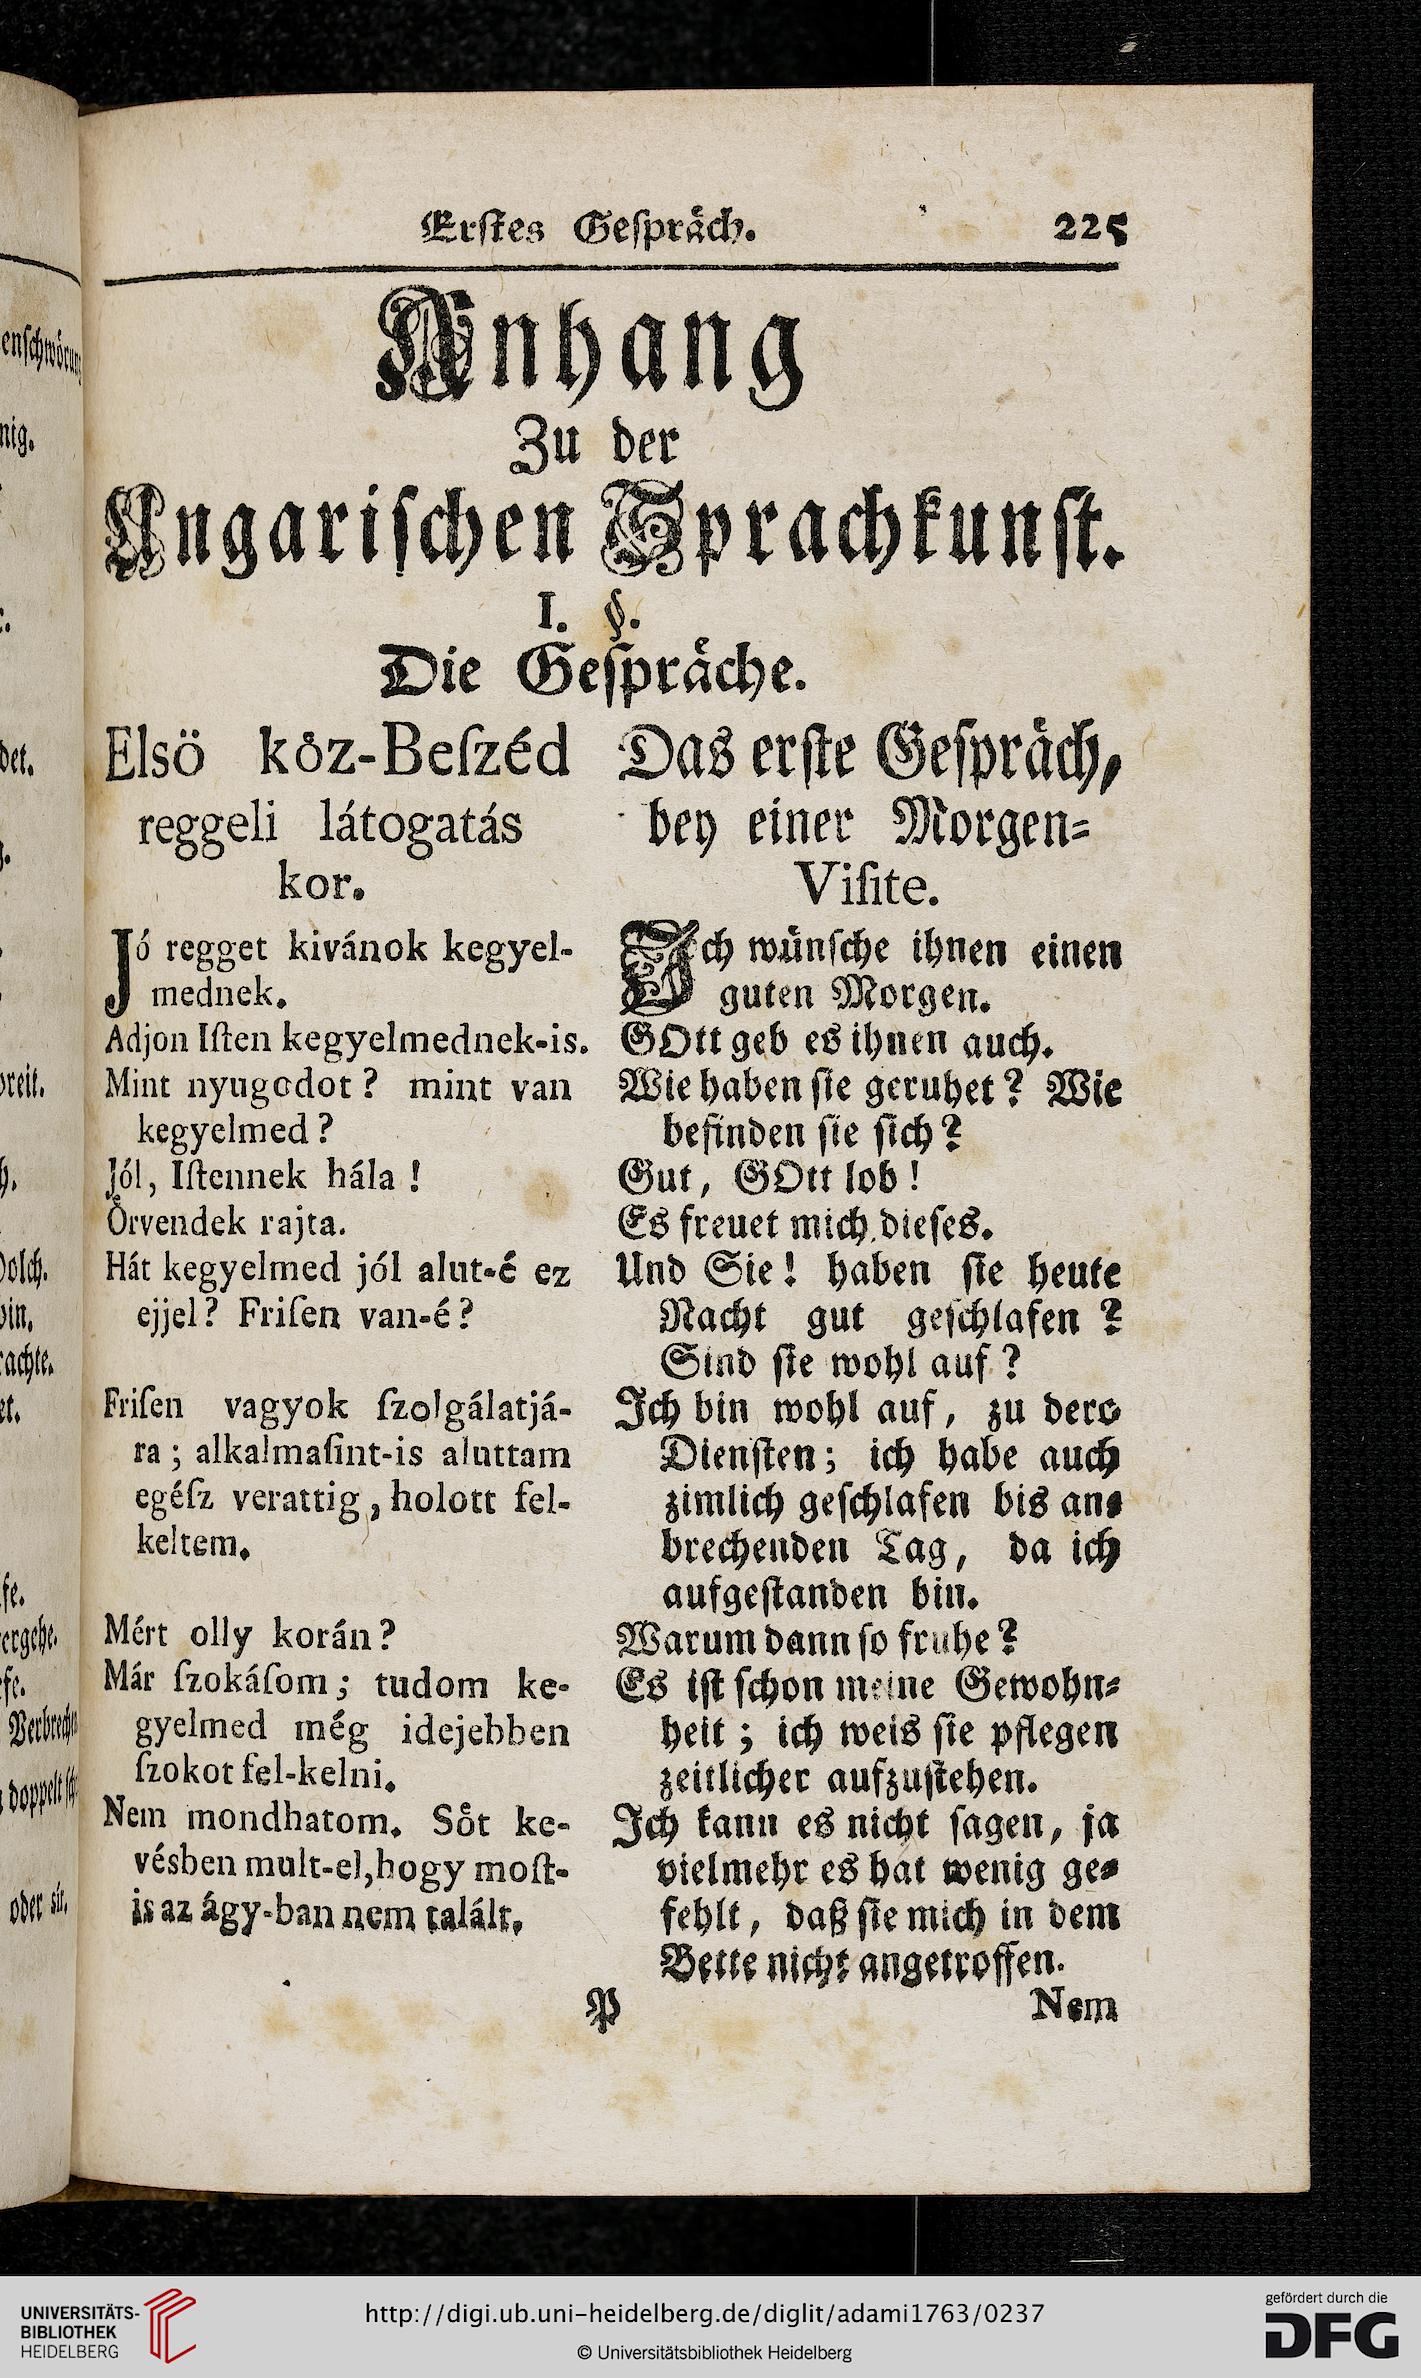 Erſtes Geſpräch. 225
Anhang
Zu der
Ungariſchen Sprachkunſt.
I. §.
Die Geſpräche.
Elsö kôz-Beſzéd
reggeli látogatás
kor.
Jó regget kivánok kegyel-
mednek.
Adjon Iſten kegyelmednek-is.
Mint nyugodot? mint van
kegyelmed?
Jól, Iſtennek hála!
Oͤrvendek rajta.
Hát kegyelmed jól alut-é ez
ejjel? Friſen van-é?
Friſen vagyok ſzolgálatjá-
ra; alkalmaſint-is aluttam
egéſz verattig, holott fel-
keltem.
Mért olly korán?
Már ſzokáſom; tudom ke-
gyelmed még idejebben
ſzokot fel-kelni.
Nem mondhatom. Soͤt ke-
vésben mult-el, hogy moſt-
is az ágy-ban nem talált.
Das erſte Geſpräch,
bey einer Morgen-
Viſite.
Ich wünſche ihnen einen
guten Morgen.
GOtt geb es ihnen auch.
Wie haben ſie geruhet? Wie
befinden ſie ſich?
Gut, GOtt lob!
Es freuet mich dieſes.
Und Sie! haben ſie heute
Nacht gut geſchlafen?
Sind ſie wohl auf?
Ich bin wohl auf, zu dero
Dienſten; ich habe auch
zimlich geſchlafen bis an-
brechenden Tag, da ich
aufgeſtanden bin.
Warum dann ſo fruhe?
Es iſt ſchon meine Gewohn-
heit; ich weis ſie pflegen
zeitlicher aufzuſtehen.
Ich kann es nicht ſagen, ja
vielmehr es hat wenig ge-
fehlt, daß ſie mich in dem
Bette nicht angetroffen.
P Nem
enſchwörung
nig.
det.
breit.
Dolch.
rachte.
Verbrech
doppelt
oder sir.
UNIVERSITÄTS-
BIBLIOTHEK
HEIDELBERG
http://digi.ub.uni-heidelberg.de/diglit/adami1763/0237
© Universitätsbibliothek Heidelberg
gefördert durch die
DFG